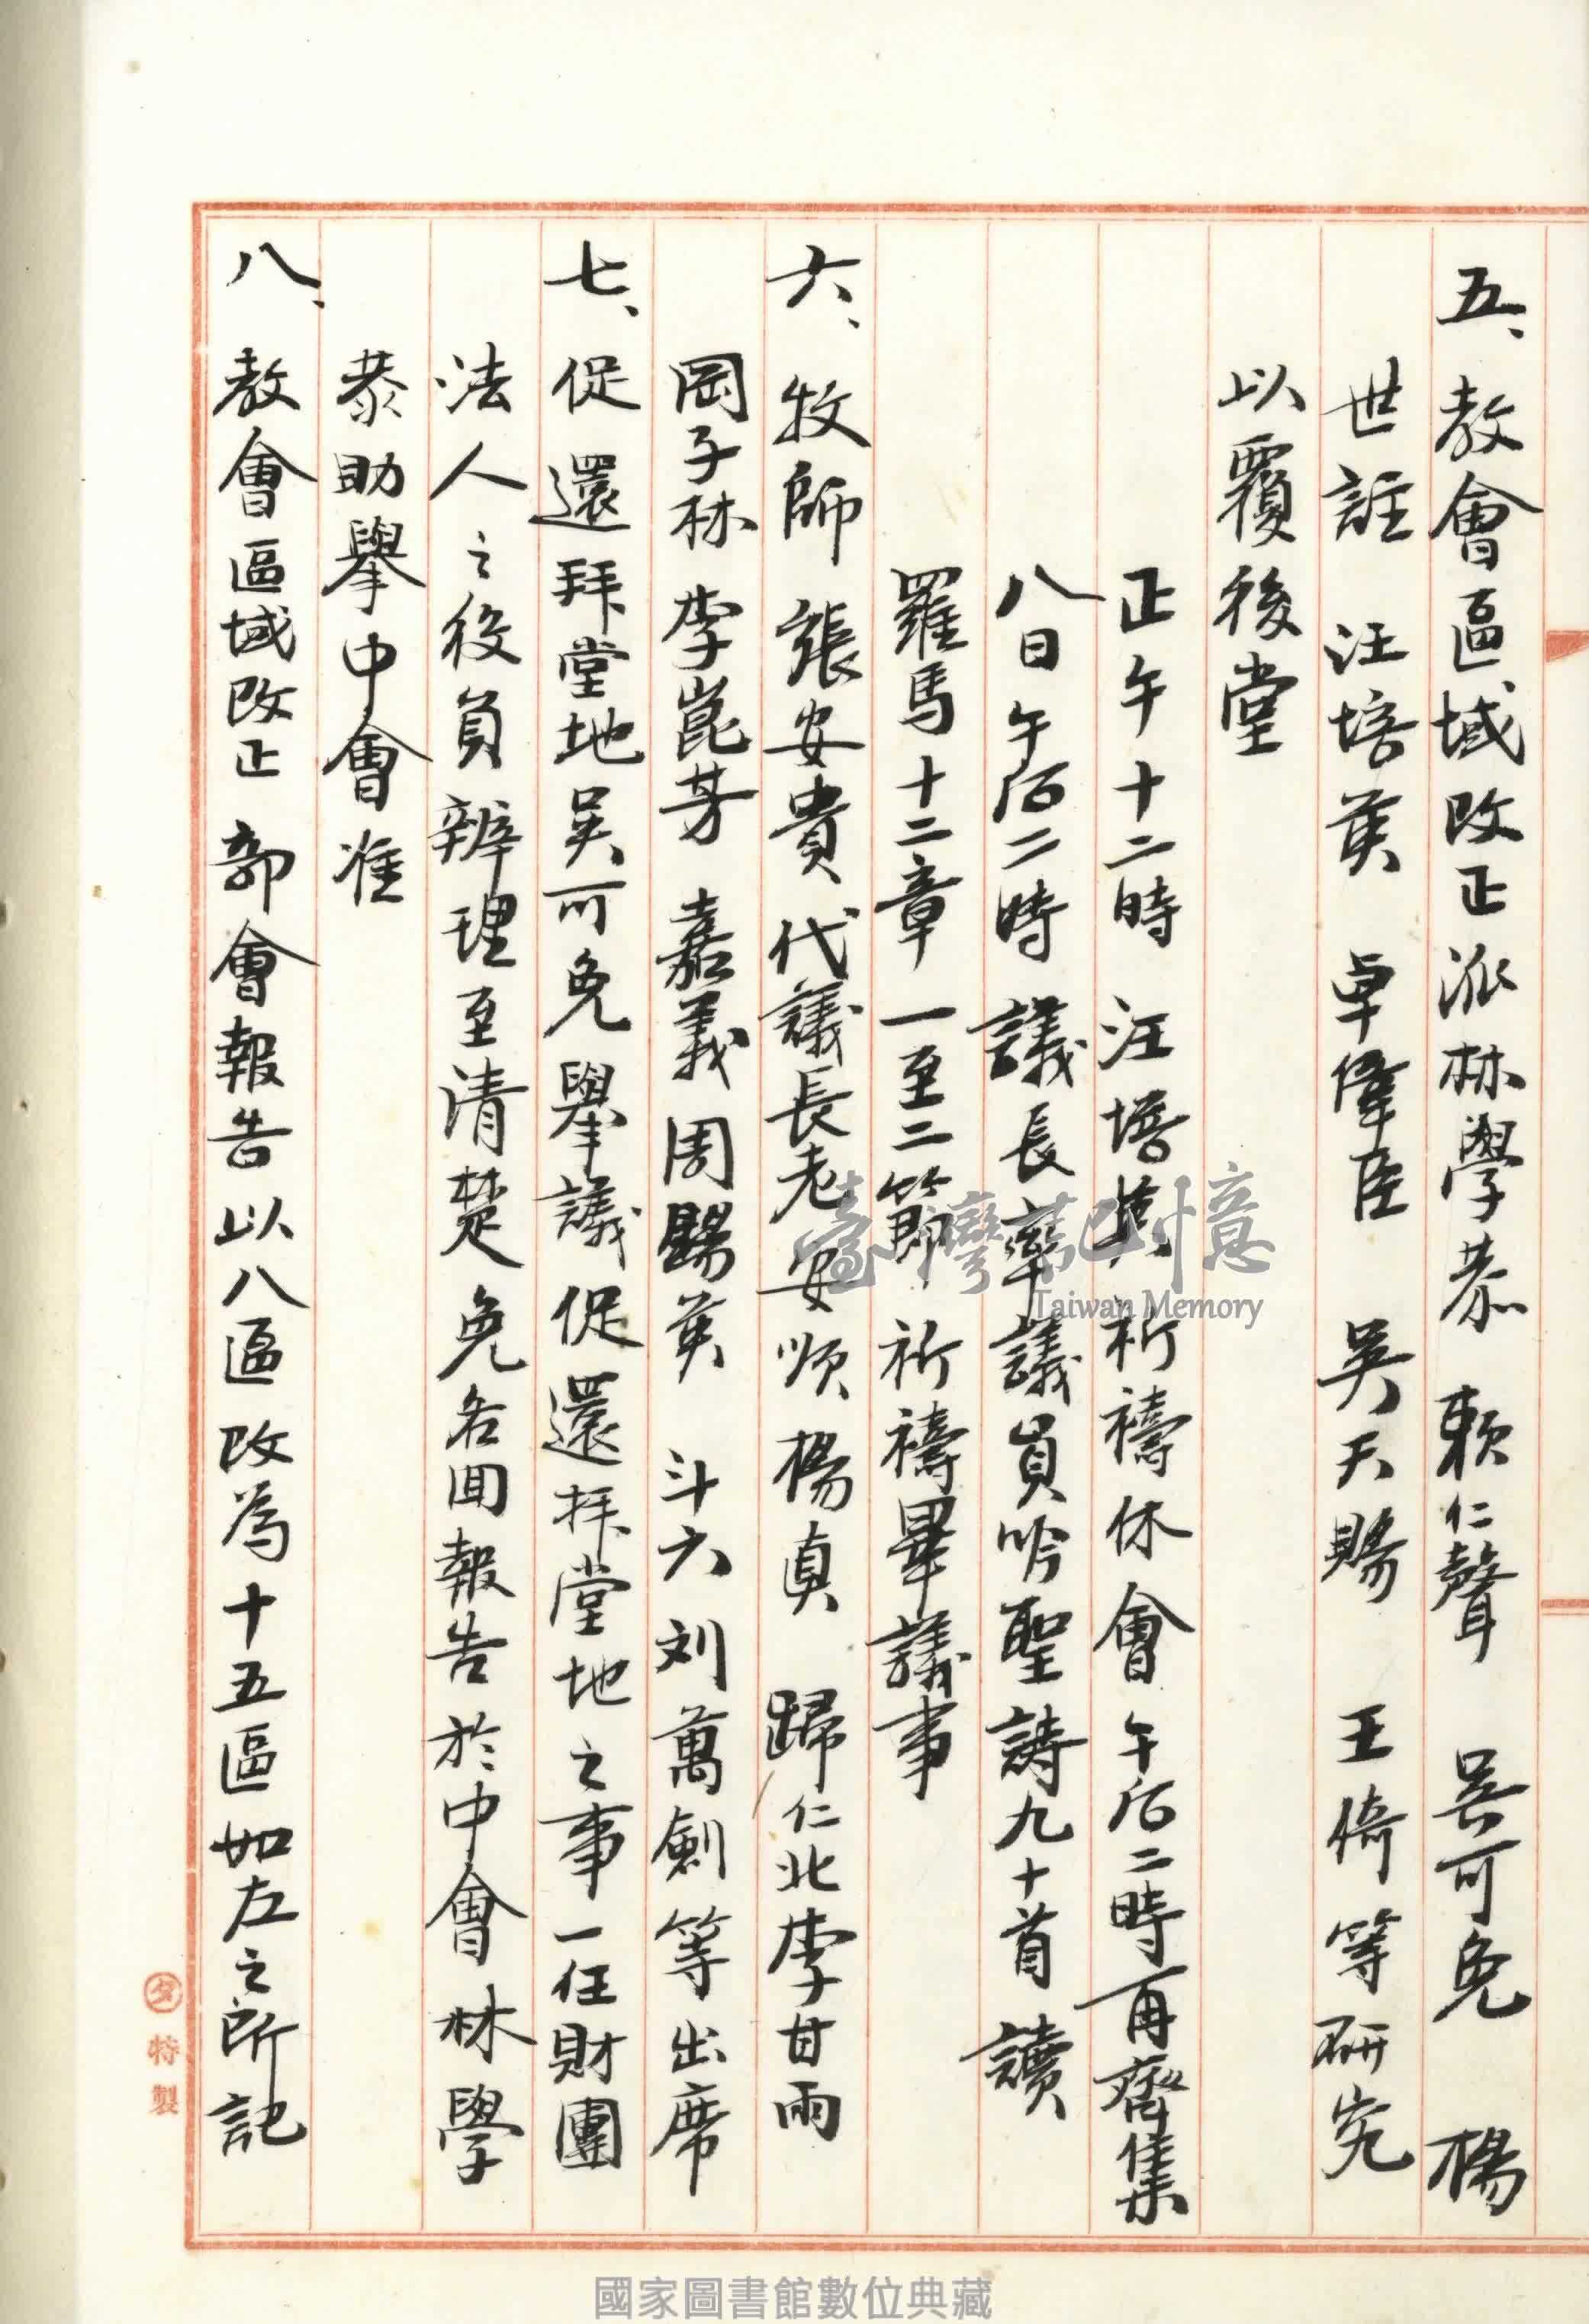 五、教會區域改正派林學恭 賴仁聲 吳可免 楊
世註 汪培英 卓偉臣 吳天賜 王倚等研究
以覆後堂
正午十二時 汪培英祈禱休會午后二時再齊集
八日午后二時 議長率議員吟聖詩九十首讀
羅馬十二章一至二節祈禱畢議事
六、牧師 張安貴代議長老安順楊真 歸仁北李甘雨
岡子林 李崑芳 嘉義周賜英 斗六刘萬劍等出席
七、促還拜堂地吳可免舉議促還拜堂地之事一任財團
法人之役員辨理至清楚免名囬報告於中會林學
恭助舉中會准
八、教會區域改正部會報告以八區改為十五區如左之所記
特製
臺灣記憶
Taiwan Memory
國家圖書館數位典藏